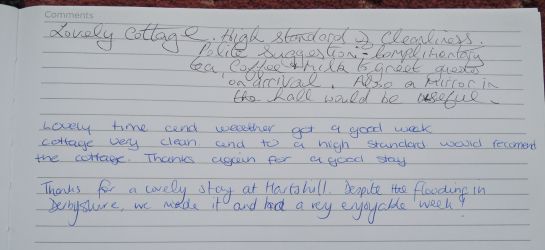 Comments
Lovely Cottage. High standard of Cleanliness.
Polite Suggestion:- Complimentary
tea, Coffee + milk to greet guests
on arrival. Also a Mirror in
the hall would be useful.
Lovely time and weather got a good week
cottage very clean and to a high standard would recoment
the cottage. Thanks again for a good stay
Thanks for a lovely stay at Hartshill. Despite the flooding in
Derbyshire, we made it and had a very enjoyable week!